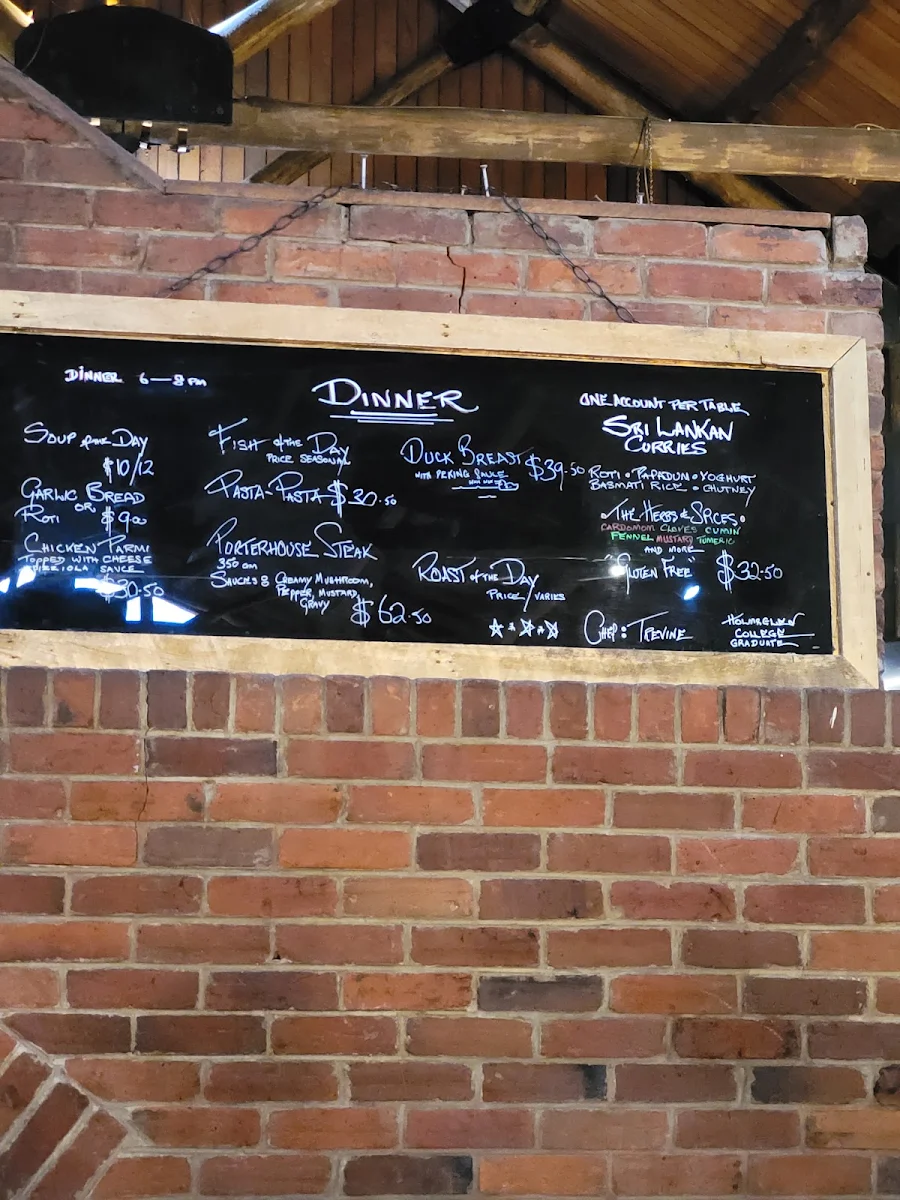 DINNER 6 — 8 PM
DINNER
ONE ACCOUNT PER TABLE
SOUP of the DAY
$10/12
GARLIC BREAD
OR
ROTI $9.00
CHICKEN PARMI
TOPPED WITH CHEESE
SAUCE
$30.50
FISH of the DAY
PRICE SEASONAL
PASTA-PASTA $30.50
PORTERHOUSE STEAK
350 GM
SAUCES CREAMY MUSHROOM,
PEPPER, MUSTARD,
GRAVY $62.50
DUCK BREAST $39.50
WITH PEKING SAUCE
ROAST of the DAY
PRICE VARIES
SRI LANKAN
CURRIES
ROTI • PAPADUM • YOGHURT
BASMATI RICE • CHUTNEY
• THE HERBS & SPICES •
CARDOMOM CLOVES CUMIN
FENNEL MUSTARD TUMERIC
AND MORE
GLUTEN FREE $32.50
CHEF: TREVINE
COLLEGE
GRADUATE